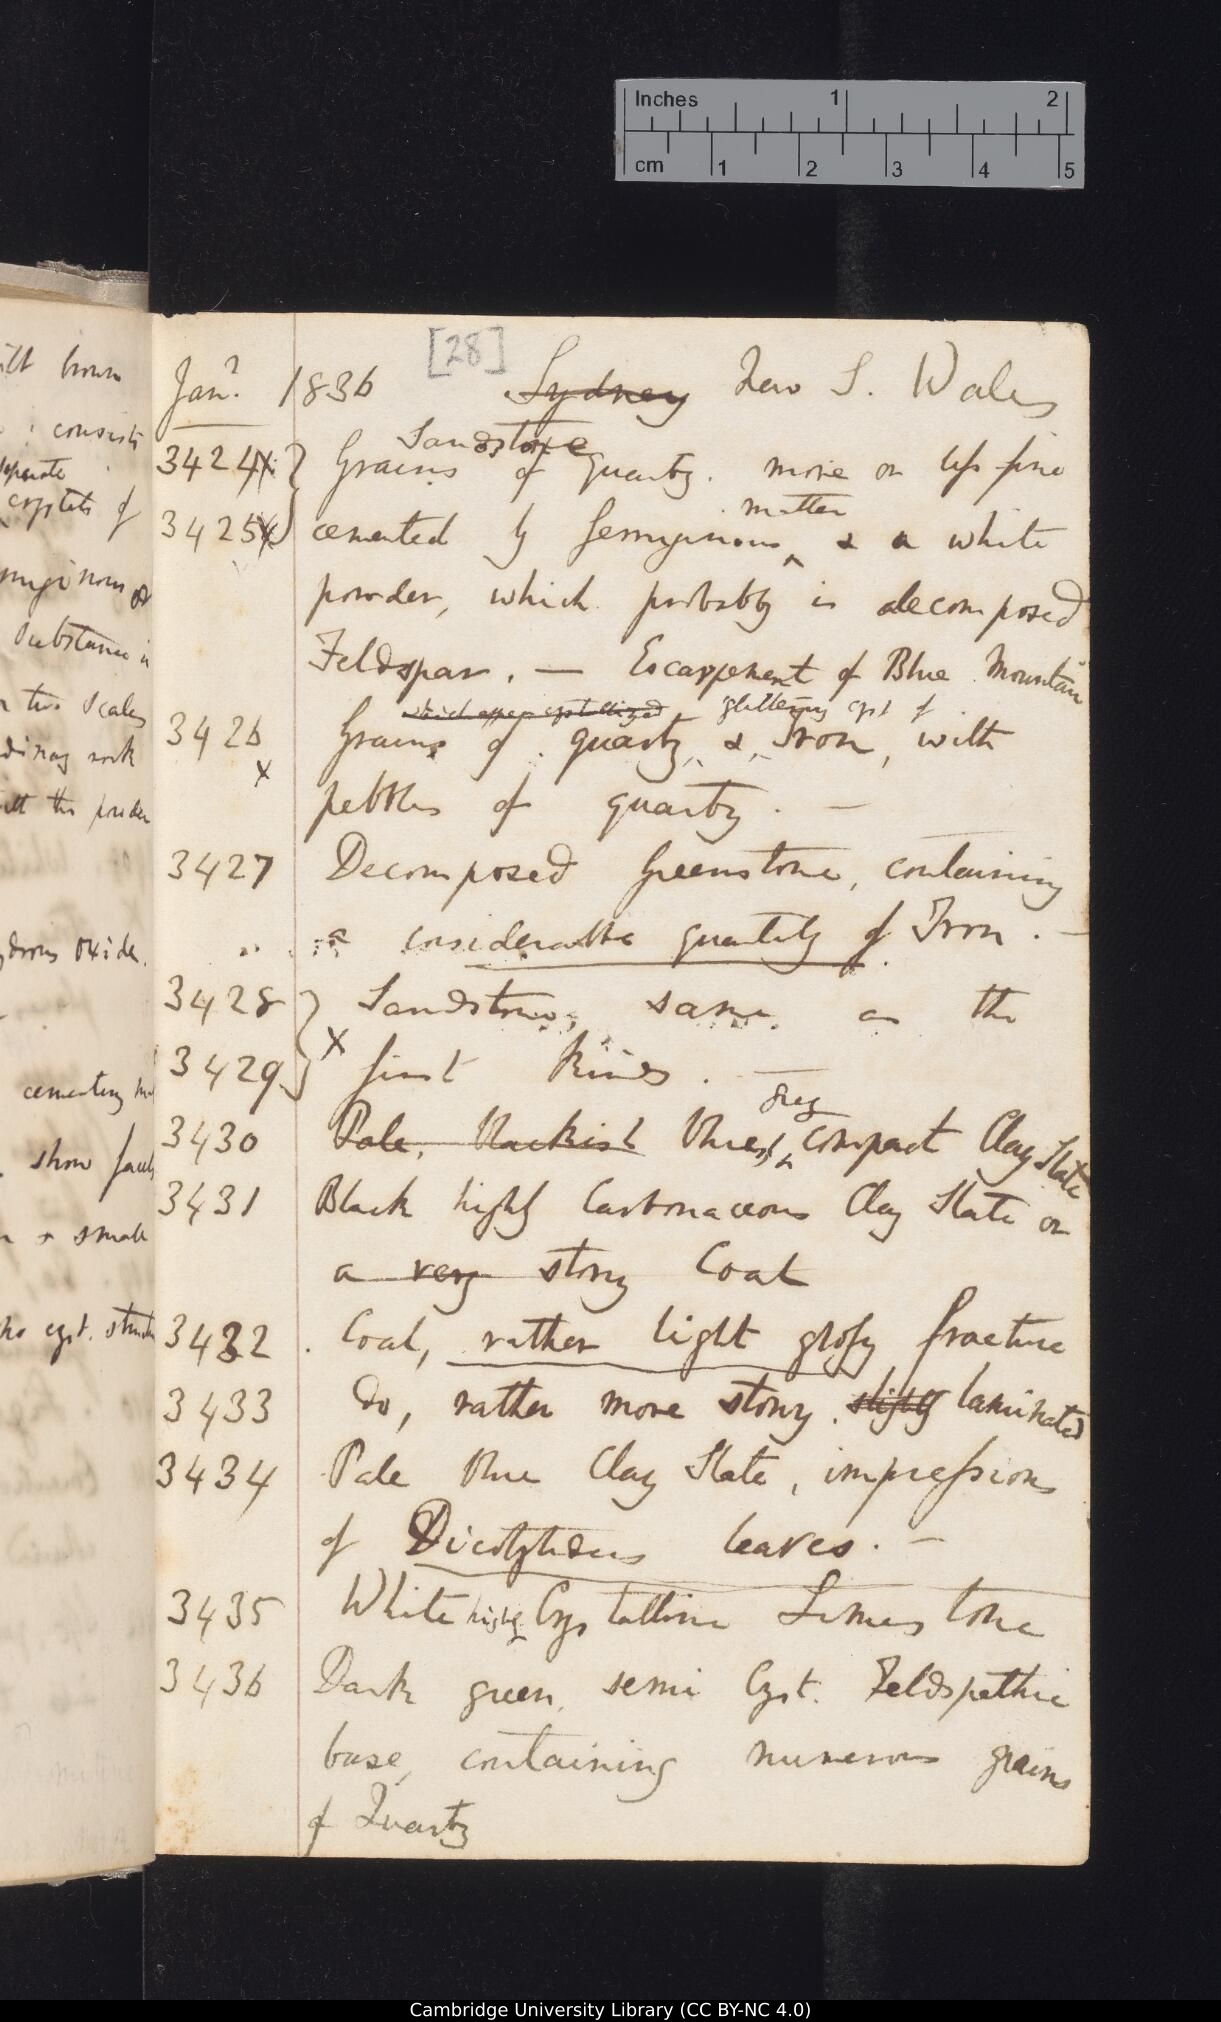 Inches 1 2
cm 1 2 3 4 5
[28]
Jany. 1836 Sydney New S. Wales
Sandstone
3424 x } Grains of quartz. more or less fine
matter
3425 x } cemented by ferruginous ^ & a white
powder, which probably is decomposed
Feldspar. — Escarpement of Blue Mountain
glittering cyst of
3426 Grains of quartz, & Iron, with
x pebbles of quartz. —
3427 Decomposed Greenstone, containing
a considerable quantity of Iron. —
3428 } Sandstone, same as the
3429 } x first kinds. —
grey
3430 Pale, blackish Blueish ^ compact Clay Slate
3431 Black highly Carbonaceous Clay Slate or
a very stony Coal
3432 . Coal, rather light glossy fracture
3433 do, rather more stony. slightly laminated
3434 Pale blue Clay Slate, impressions
of Dicotyledenous leaves. —
3435 White highly Crystalline Limestone
3436 Dark green, semi Cryst. Feldspathic
base, containing numerous grains
of Quartz
ill brown
: consists
separate
crystals of
Substance in
two scales
ordinary rock
with the powder
Oxide.
cementing
show
& small
no cyst. struct
Cambridge University Library (CC BY-NC 4.0)